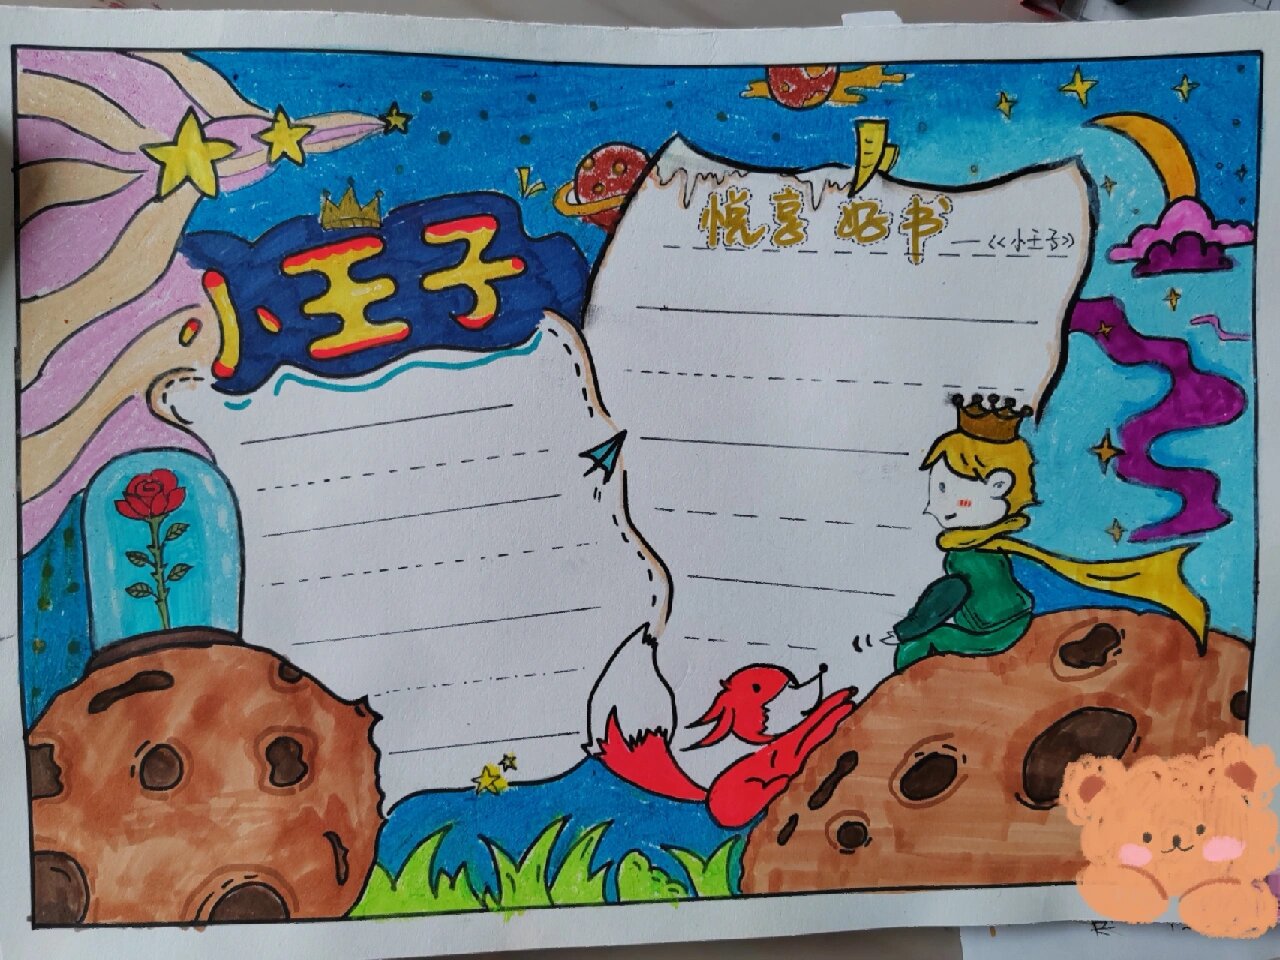 小王子
悦享好书
—《小王子》